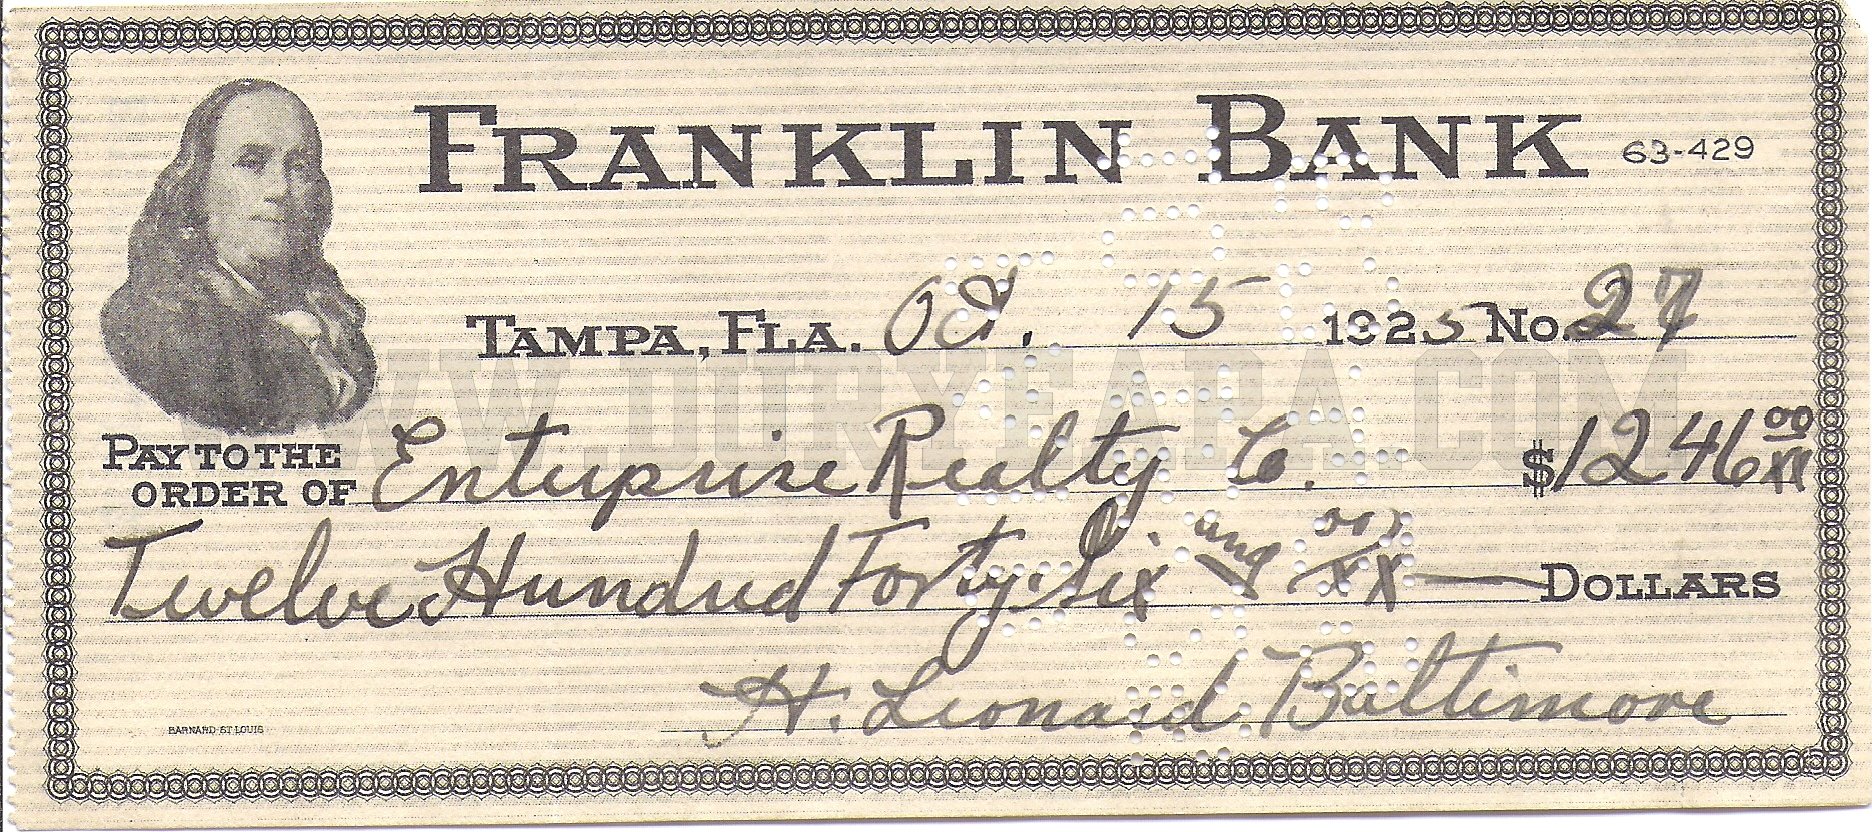 FRANKLIN BANK 63-429
TAMPA, FLA. Oct. 15 1925 No. 27
WWW.DURYEAPA.COM
PAY TO THE
ORDER OF Enterprise Realty Co. $1246 00/XX
Twelve Hundred Forty-Six and 00/XX DOLLARS
H. Leonard Baltimore
BARNARD-ST LOUIS